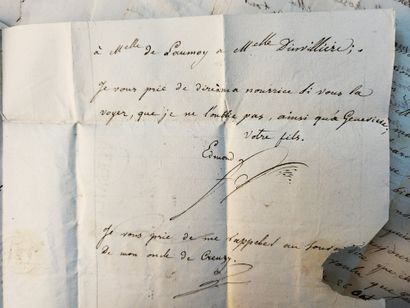 à Melle de Laumoy a Melle Dinvilliere;.
Je vous prie de dire à ma nourrice si vous la
voyer, que je ne l'oublie pas, ainsi qu'a Genevieve
votre fils.
Edmond
Je vous prie de me rappeler au souvenir
de mon oncle de Crensy.